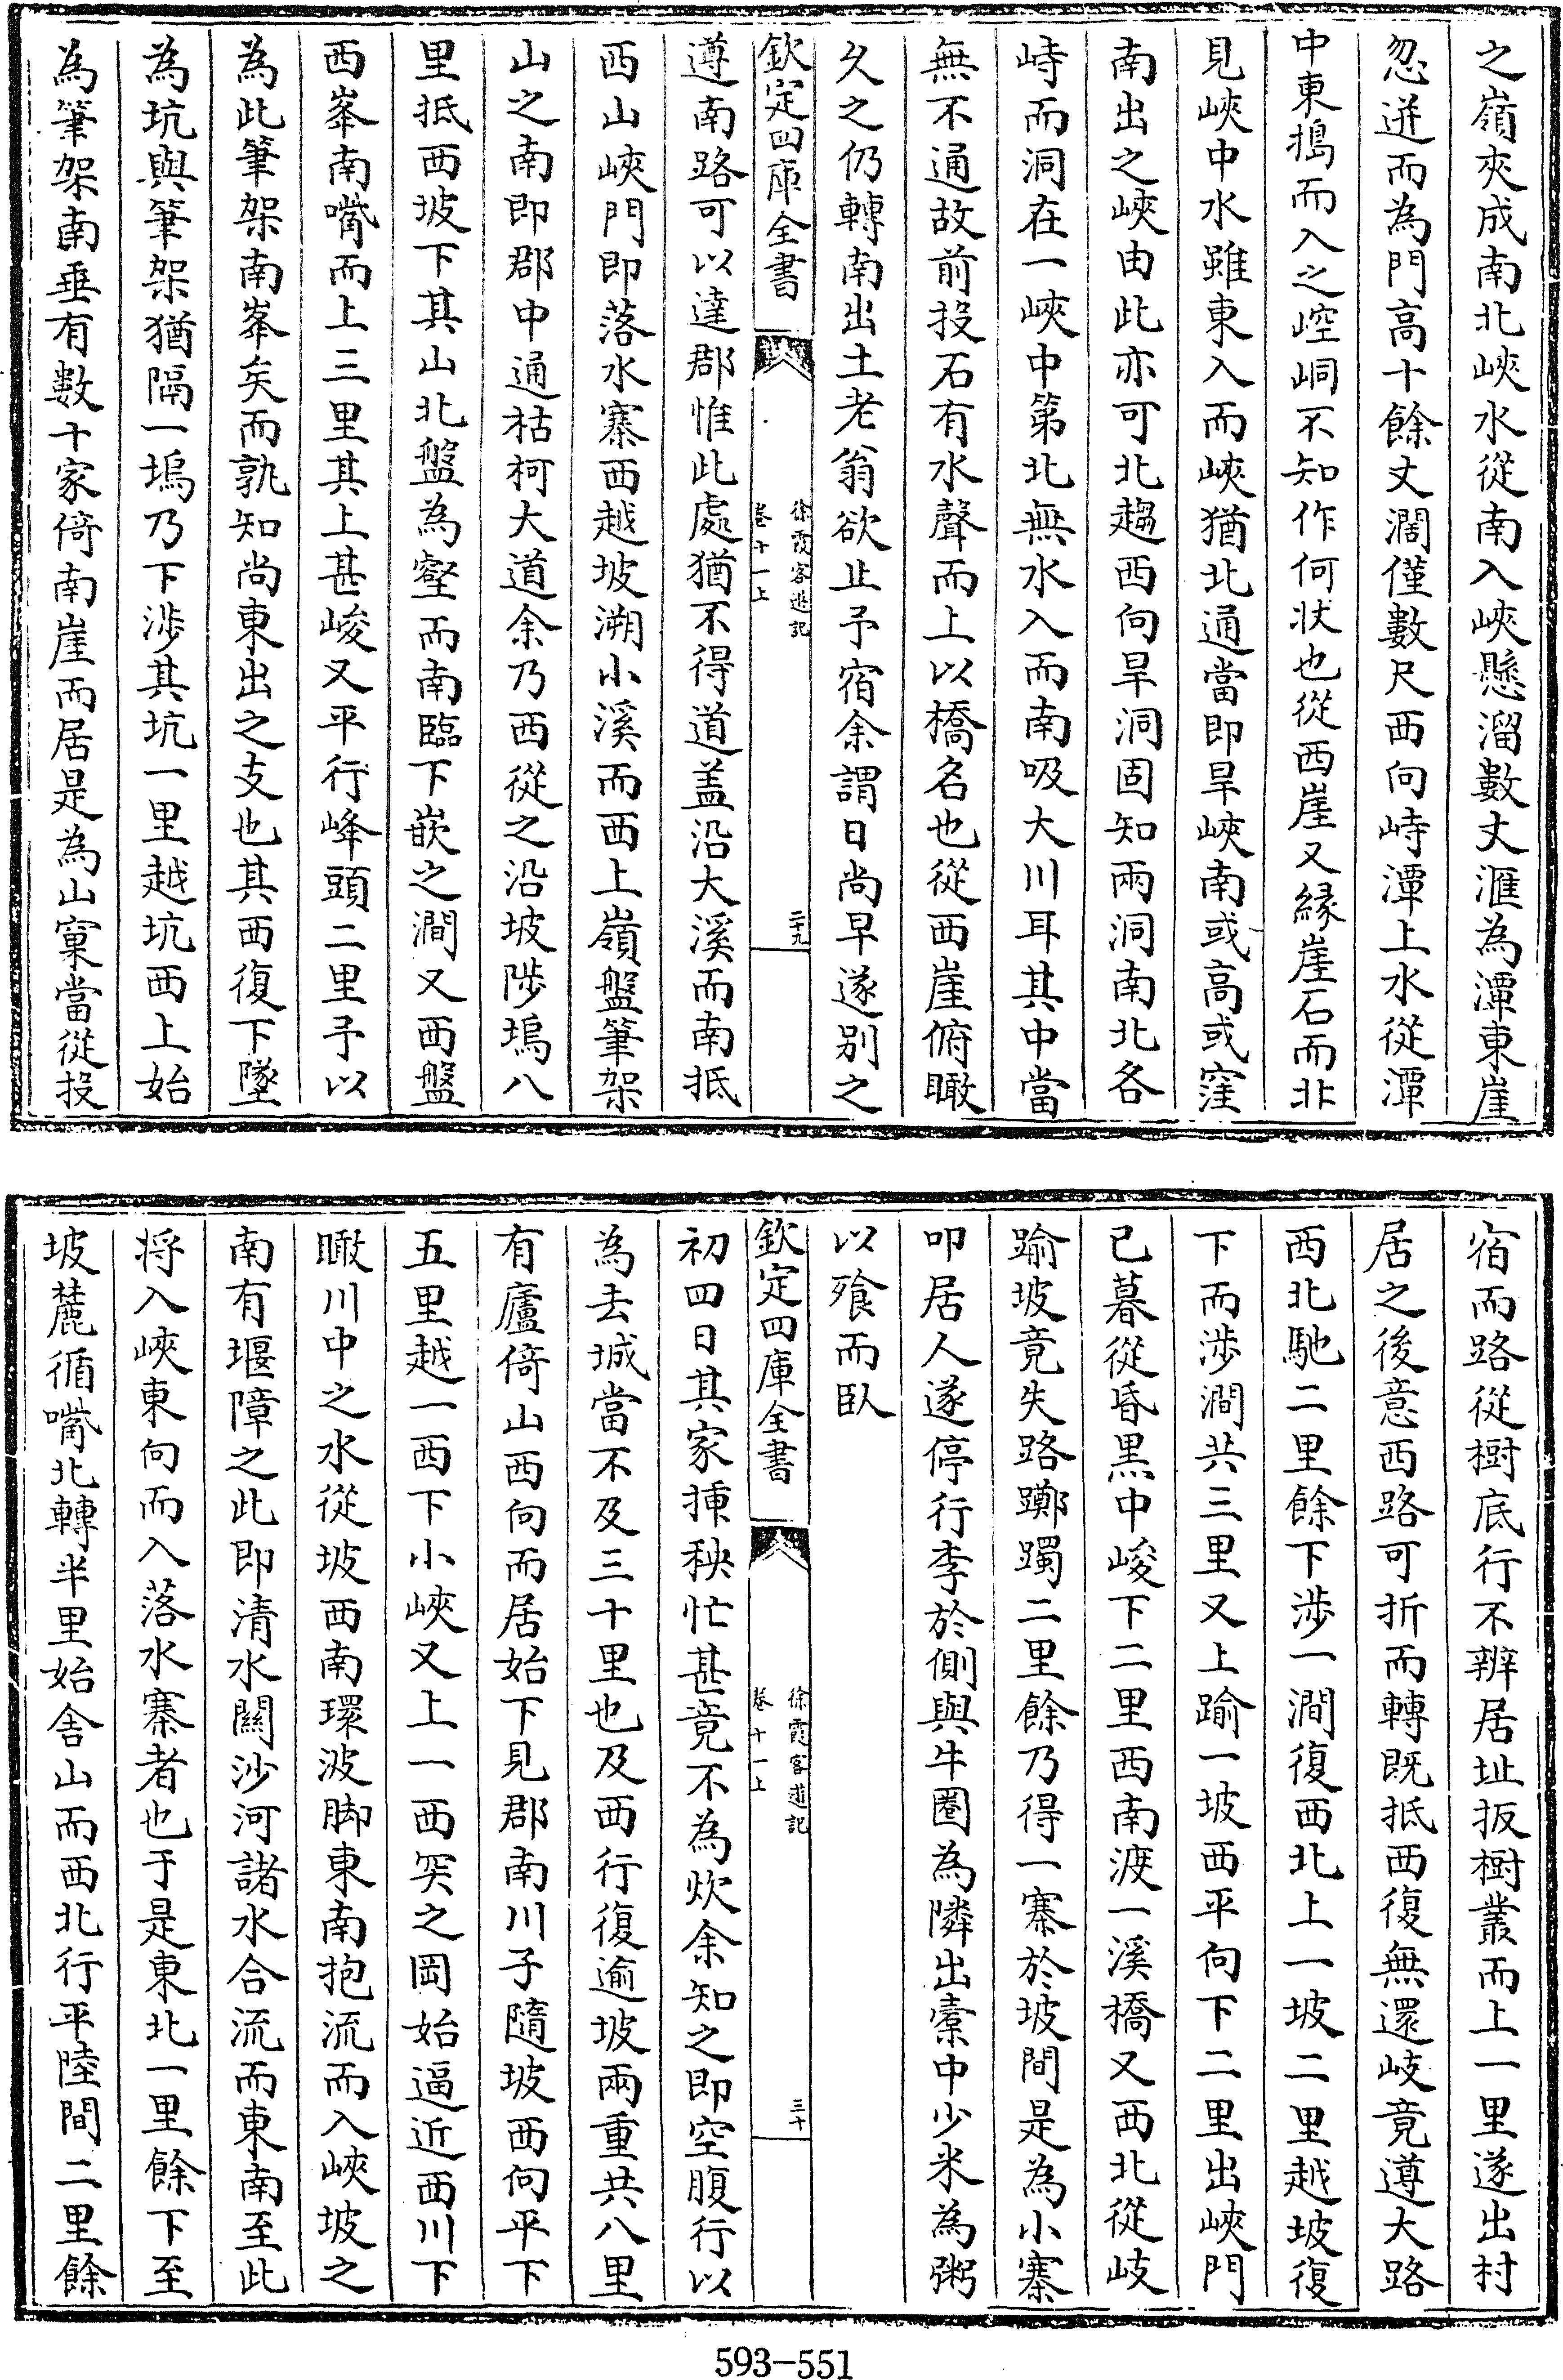 之嶺夾成南北峽水從南入峽懸溜數丈滙為潭東崖
忽迸而為門高十餘丈濶僅數尺西向峙潭上水從潭
中東搗而入之崆峒不知作何狀也從西崖又緣崖石而北
見峽中水雖東入而峽猶北通當即旱峽南或高或窪
南出之峽由此亦可北趨西向旱洞固知兩洞南北各
峙而洞在一峽中第北無水入而南吸大川耳其中當
無不通故前投石有水聲而上以橋名也從西崖俯瞰
久之仍轉南出土老翁欲止予宿余謂日尚早遂别之
欽定四庫全書
徐霞客遊記
卷十一上
二十九
遵南路可以達郡惟此處猶不得道盖沿大溪而南抵
西山峽門即落水寨西越坡溯小溪而西上嶺盤筆架
山之南即郡中通枯柯大道余乃西從之沿坡陟塢八
里抵西坡下其山北盤為壑而南臨下嵌之澗又西盤
西峯南嘴而上三里其上甚峻又平行峰頭二里予以
為此筆架南峯矣而孰知尚東出之支也其西復下墜
為坑與筆架猶隔一塢乃下涉其坑一里越坑西上始
為筆架南垂有數十家倚南崖而居是為山窠當從投
宿而路從樹底行不辨居址扳樹叢而上一里遂出村
居之後意西路可折而轉既抵西復無還岐竟遵大路
西北馳二里餘下涉一澗復西北上一坡二里越坡復
下而涉澗共三里又上踰一坡西平向下二里出峽門
已暮從昏黑中峻下二里西南渡一溪橋又西北從岐
踰坡竟失路躑躅二里餘乃得一寨於坡間是為小寨
叩居人遂停行李於側與牛圈為隣出橐中少米為粥
以飱而臥
欽定四庫全書
徐霞客遊記
卷十一上
三十
初四日其家插秧忙甚竟不為炊余知之即空腹行以
為去城當不及三十里也及西行復逾坡兩重共八里
有廬倚山西向而居始下見郡南川子隨坡西向平下
五里越一西下小峽又上一西突之岡始逼近西川下
瞰川中之水從坡西南環波脚東南抱流而入峽坡之
南有堰障之此即清水關沙河諸水合流而東南至此
将入峽東向而入落水寨者也于是東北一里餘下至
坡麓循嘴北轉半里始舍山而西北行平陸間二里餘
593-551